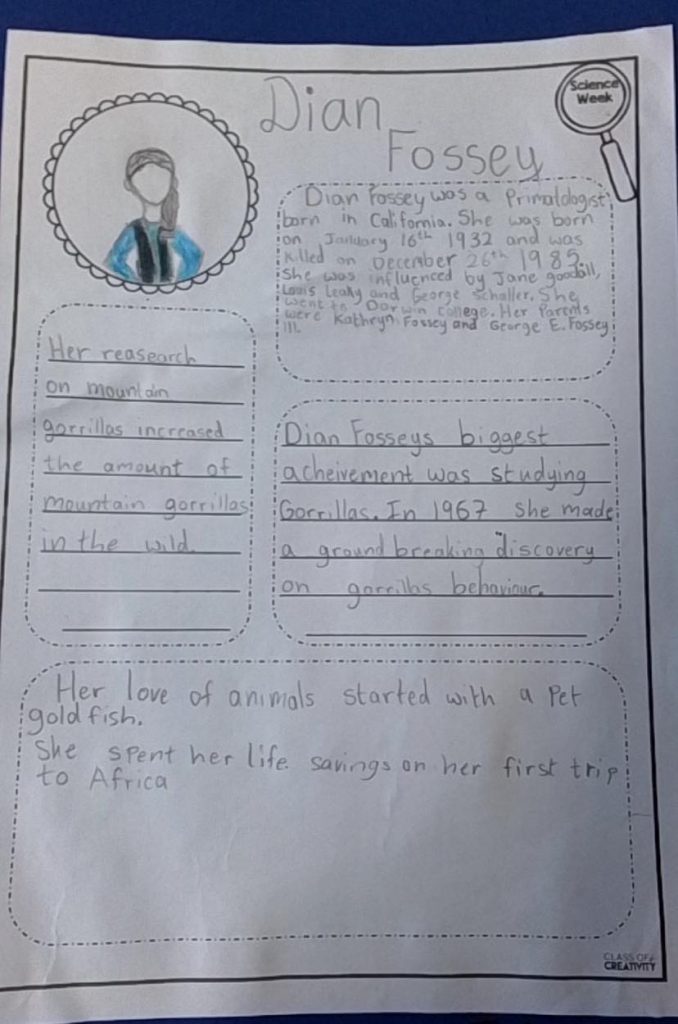 Dian
Fossey
Science
Week
Dian Fossey was a Primatologist
born in California. She was born
on January 16th 1932 and was
killed on December 26th 1985.
She was influenced by Jane goodall,
Louis Leaky and George Schaller. She
went to Darwin College. Her Parents
were Kathryn Fossey and George E. Fossey
III.
Her reasearch
on mountain
gorrillas increased
the amount of
mountain gorrillas
in the wild.
Dian Fosseys biggest
acheivement was studying
Gorrillas. In 1967 she made
a ground breaking discovery
on gorrillas behaviour.
Her love of animals started with a Pet
goldfish.
She spent her life savings on her first trip
to Africa
CLASS OF
CREATIVITY